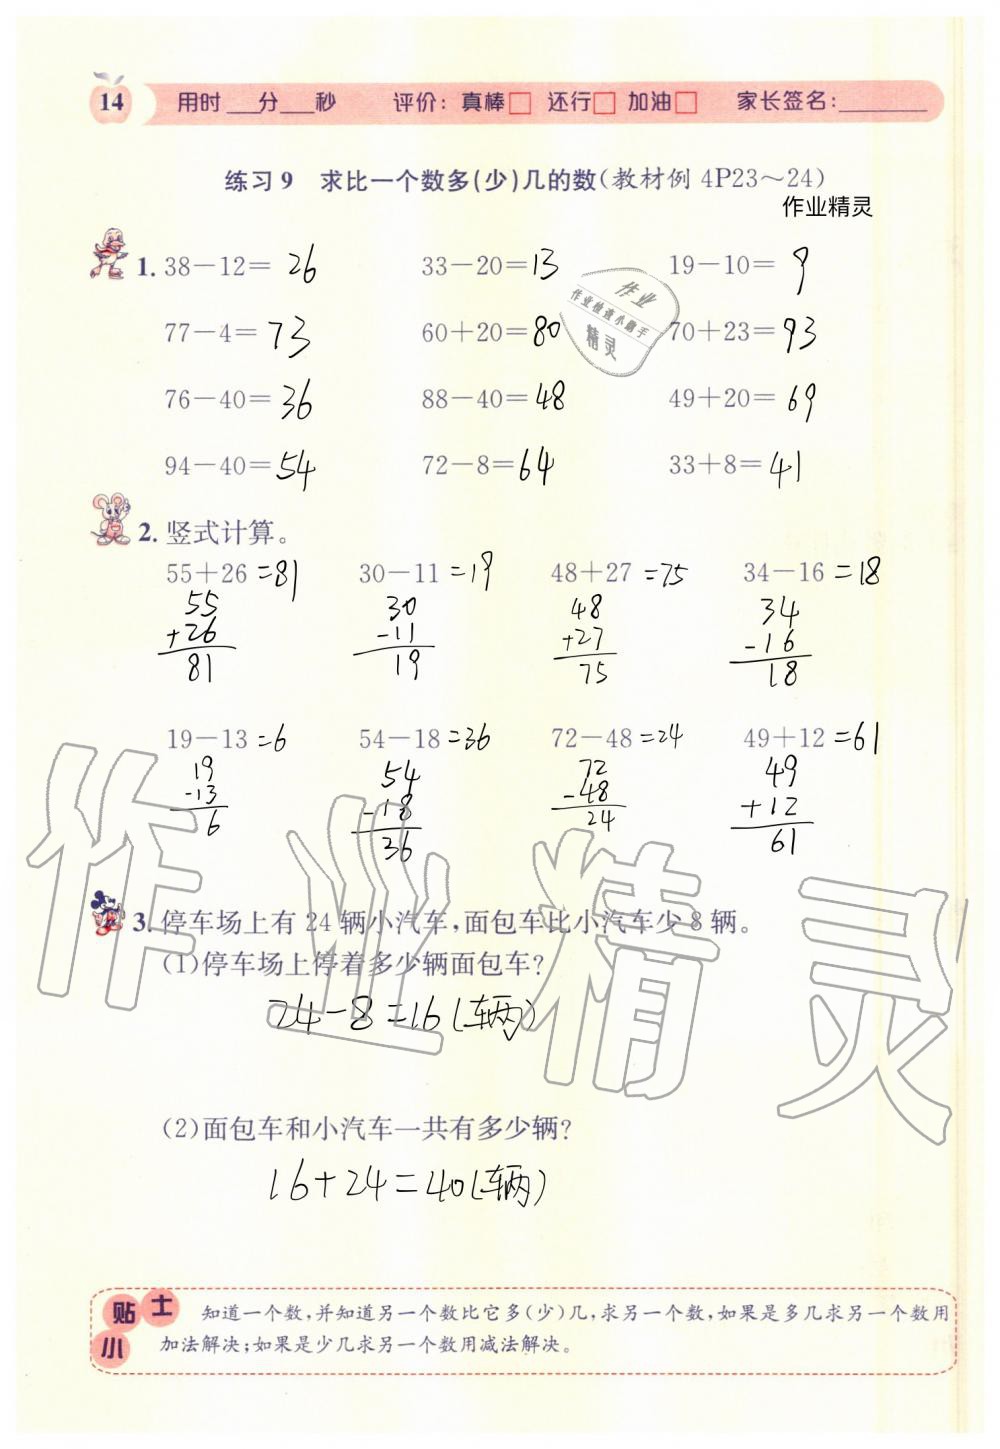 14 用时___分___秒 评价:真棒□ 还行□ 加油□ 家长签名:________
练习9 求比一个数多(少)几的数(教材例4P23～24)
作业精灵
1. 38－12＝ 26 33－20＝13 19－10＝ 9
作业
作业检查小帮手
精灵
77－4＝73 60＋20＝80 70＋23＝93
76－40＝ 36 88－40＝48 49＋20＝ 69
94－40＝54 72－8＝64 33＋8＝41
2. 竖式计算。
55＋26 =81 30－11 =19 48＋27 =75 34－16 =18
55 30 48 34
+26 -11 +27 -16
81 19 75 18
19－13 =6 54－18 =36 72－48 =24 49＋12 =61
19 54 72 49
-13 -18 -48 +12
6 36 24 61
3. 停车场上有24辆小汽车,面包车比小汽车少8辆。
(1)停车场上停着多少辆面包车?
24-8=16(辆)
作业精灵
(2)面包车和小汽车一共有多少辆?
16+24=40(辆)
小贴士
知道一个数,并知道另一个数比它多(少)几,求另一个数,如果是多几求另一个数用
加法解决;如果是少几求另一个数用减法解决。